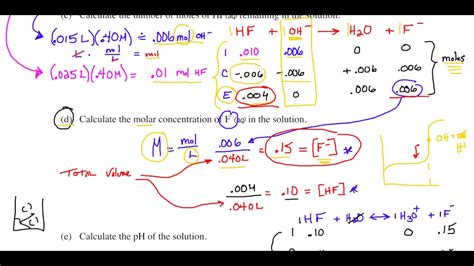 (c) Calculate the number of moles of HF(aq) remaining in the solution.
(.015L)(.40M) = .006 mol OH⁻
L · mol/L
(.025L)(.40M) = .01 mol HF
1HF + 1OH⁻ → 1H₂O + 1F⁻
I .010 .006 0 0
C -.006 -.006 +.006 .006
E .004 0 .006 .006
moles
(d) Calculate the molar concentration of F⁻(aq) in the solution.
M = mol/L .006/.040L = .15 = [F⁻] *
OH=
TOTAL VOLUME
.004/.040L = .10 = [HF] *
1HF + H₂O ↔ 1H₃O⁺ + 1F⁻
(e) Calculate the pH of the solution.
I .10 0 .15